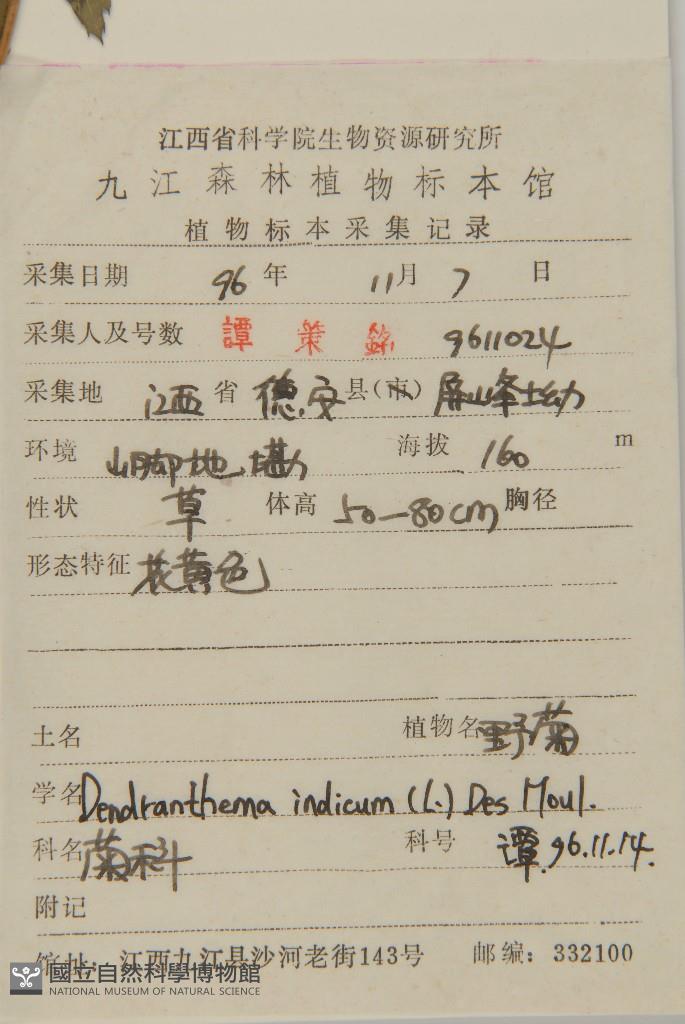 江西省科学院生物资源研究所
九江森林植物标本馆
植物标本采集记录
采集日期 96 年 11 月 7 日
采集人及号数 譚策銘 9611024
采集地 江西 省 德安 县(市) 屏山峰
环境 山脚地堪 海拔 160 m
性状 草 体高 50—80cm 胸径
形态特征 花黄色
土名 植物名 野菊
学名 Dendranthema indicum (L.) Des Moul.
科名 菊科 科号 谭.96.11.14.
附记
馆址：江西九江县沙河老街143号 邮编：332100
國立自然科學博物館
NATIONAL MUSEUM OF NATURAL SCIENCE